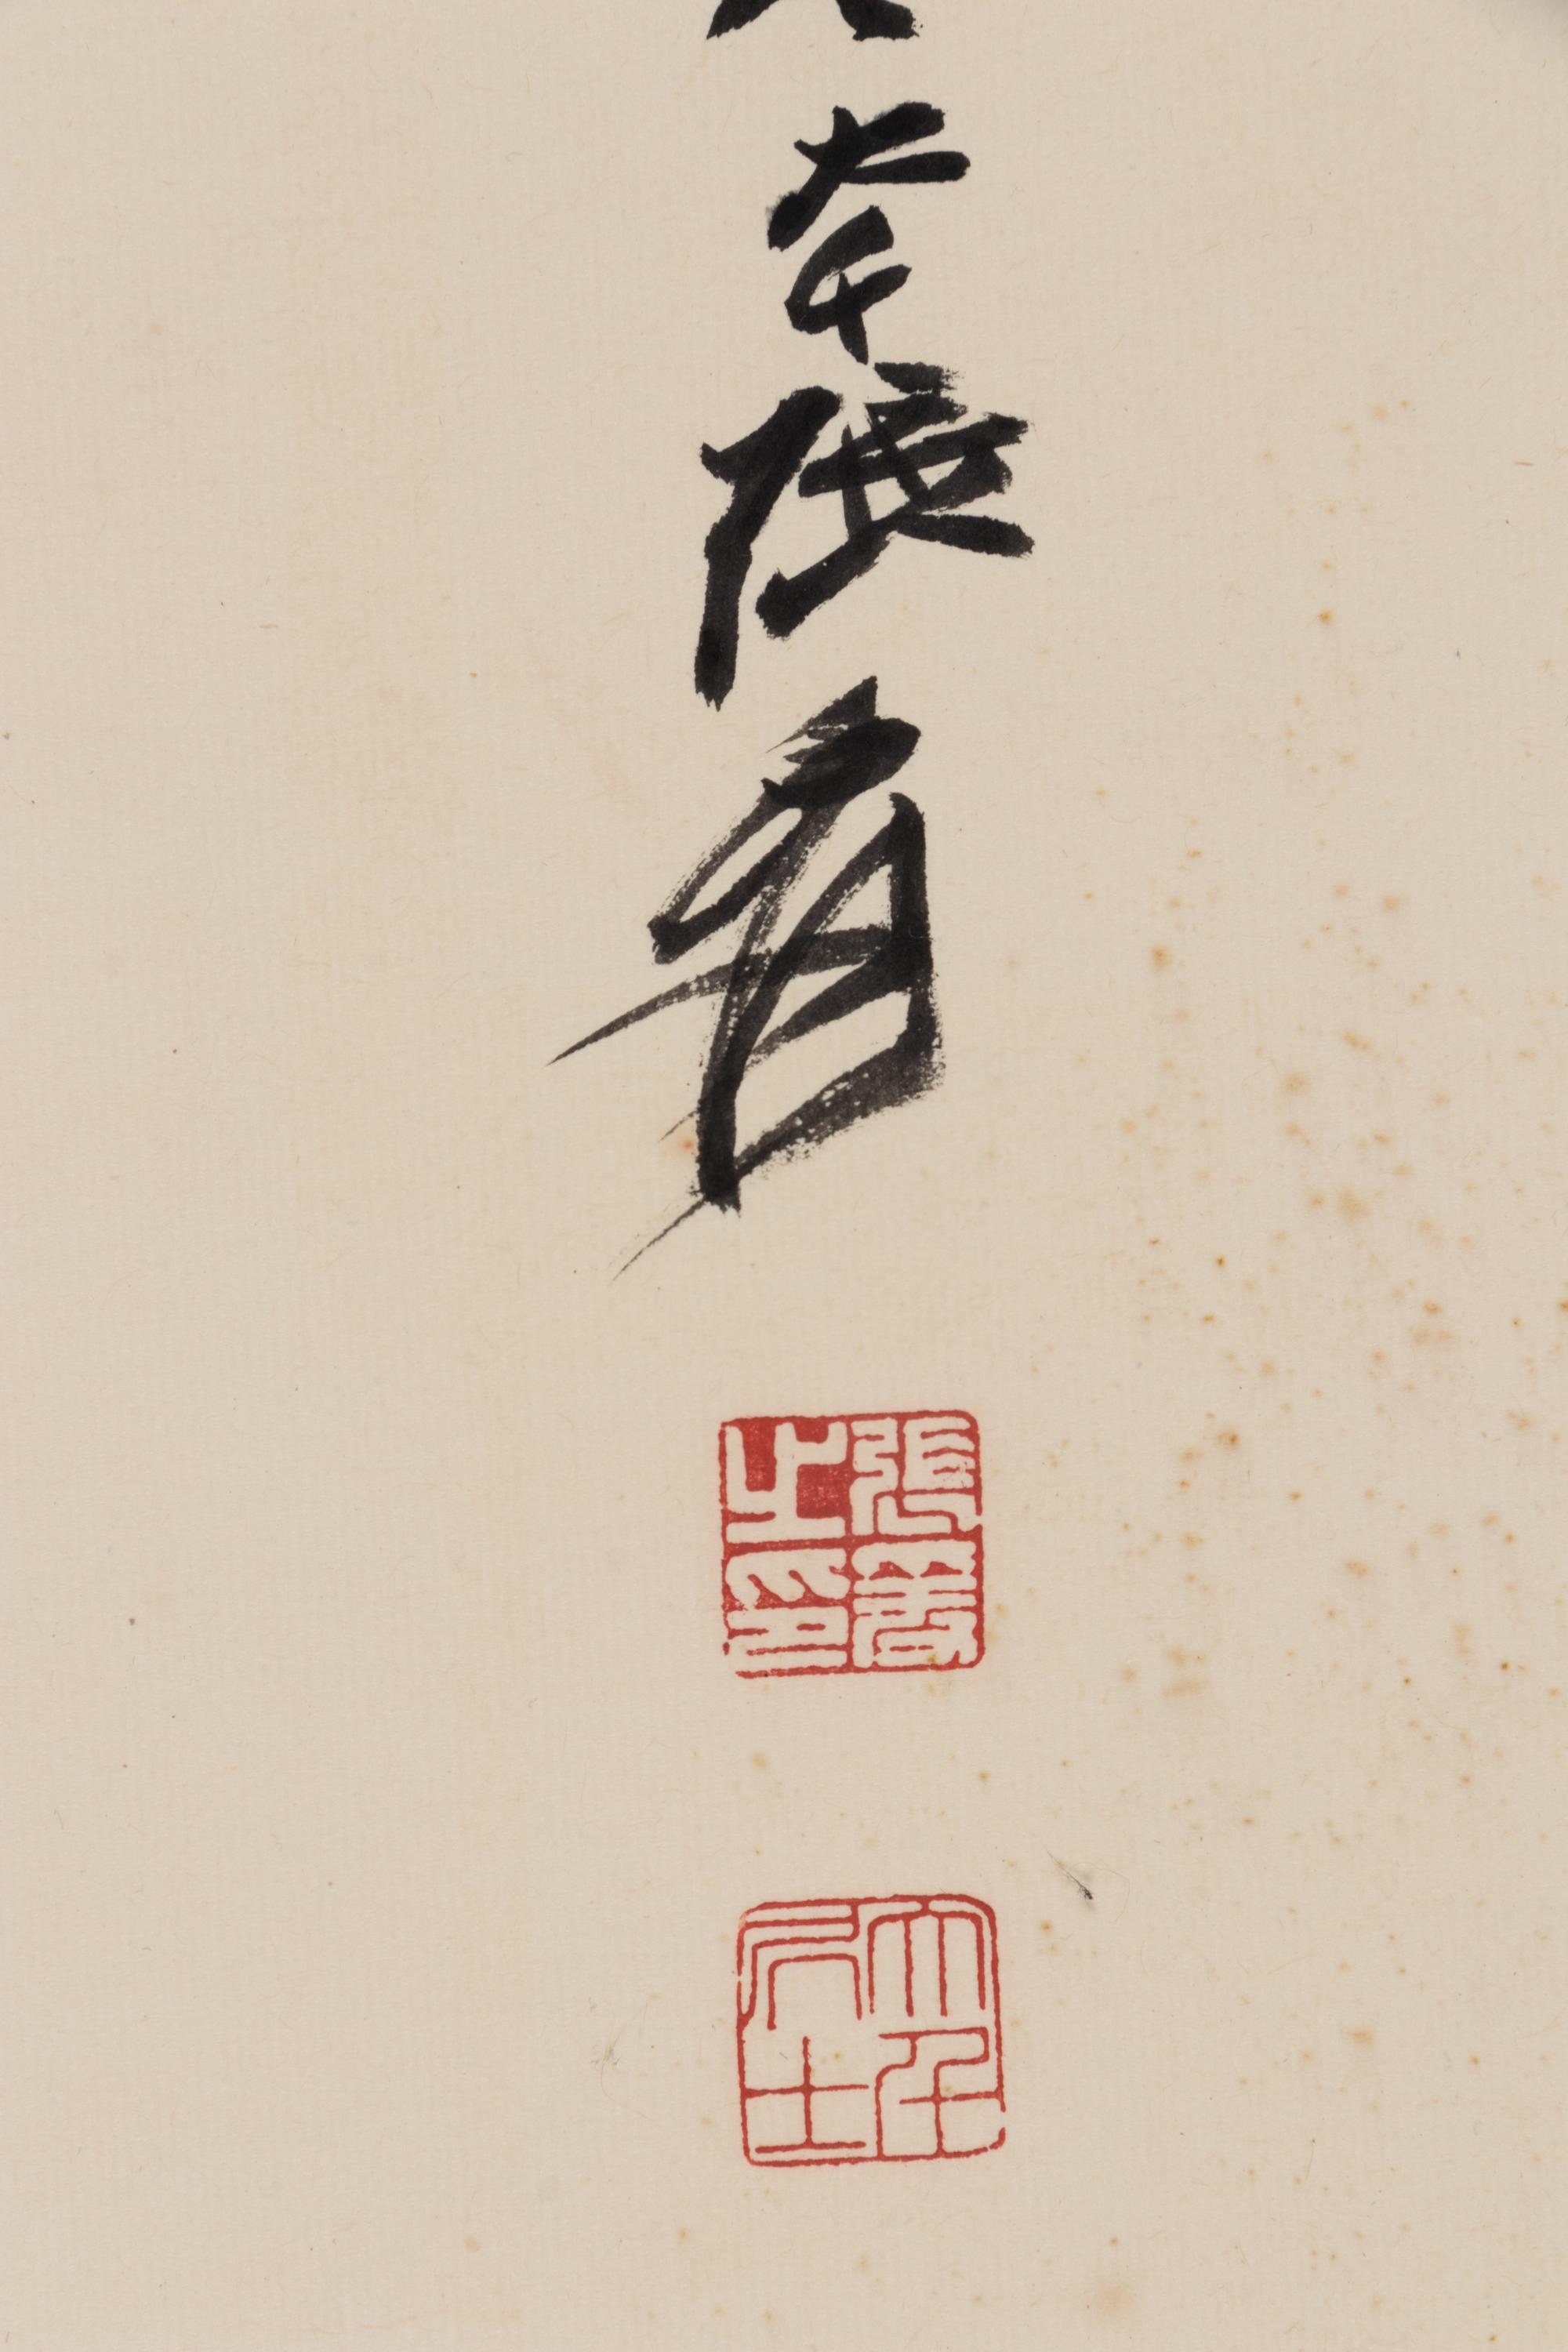 大千張爰
張爰之印
大千居士